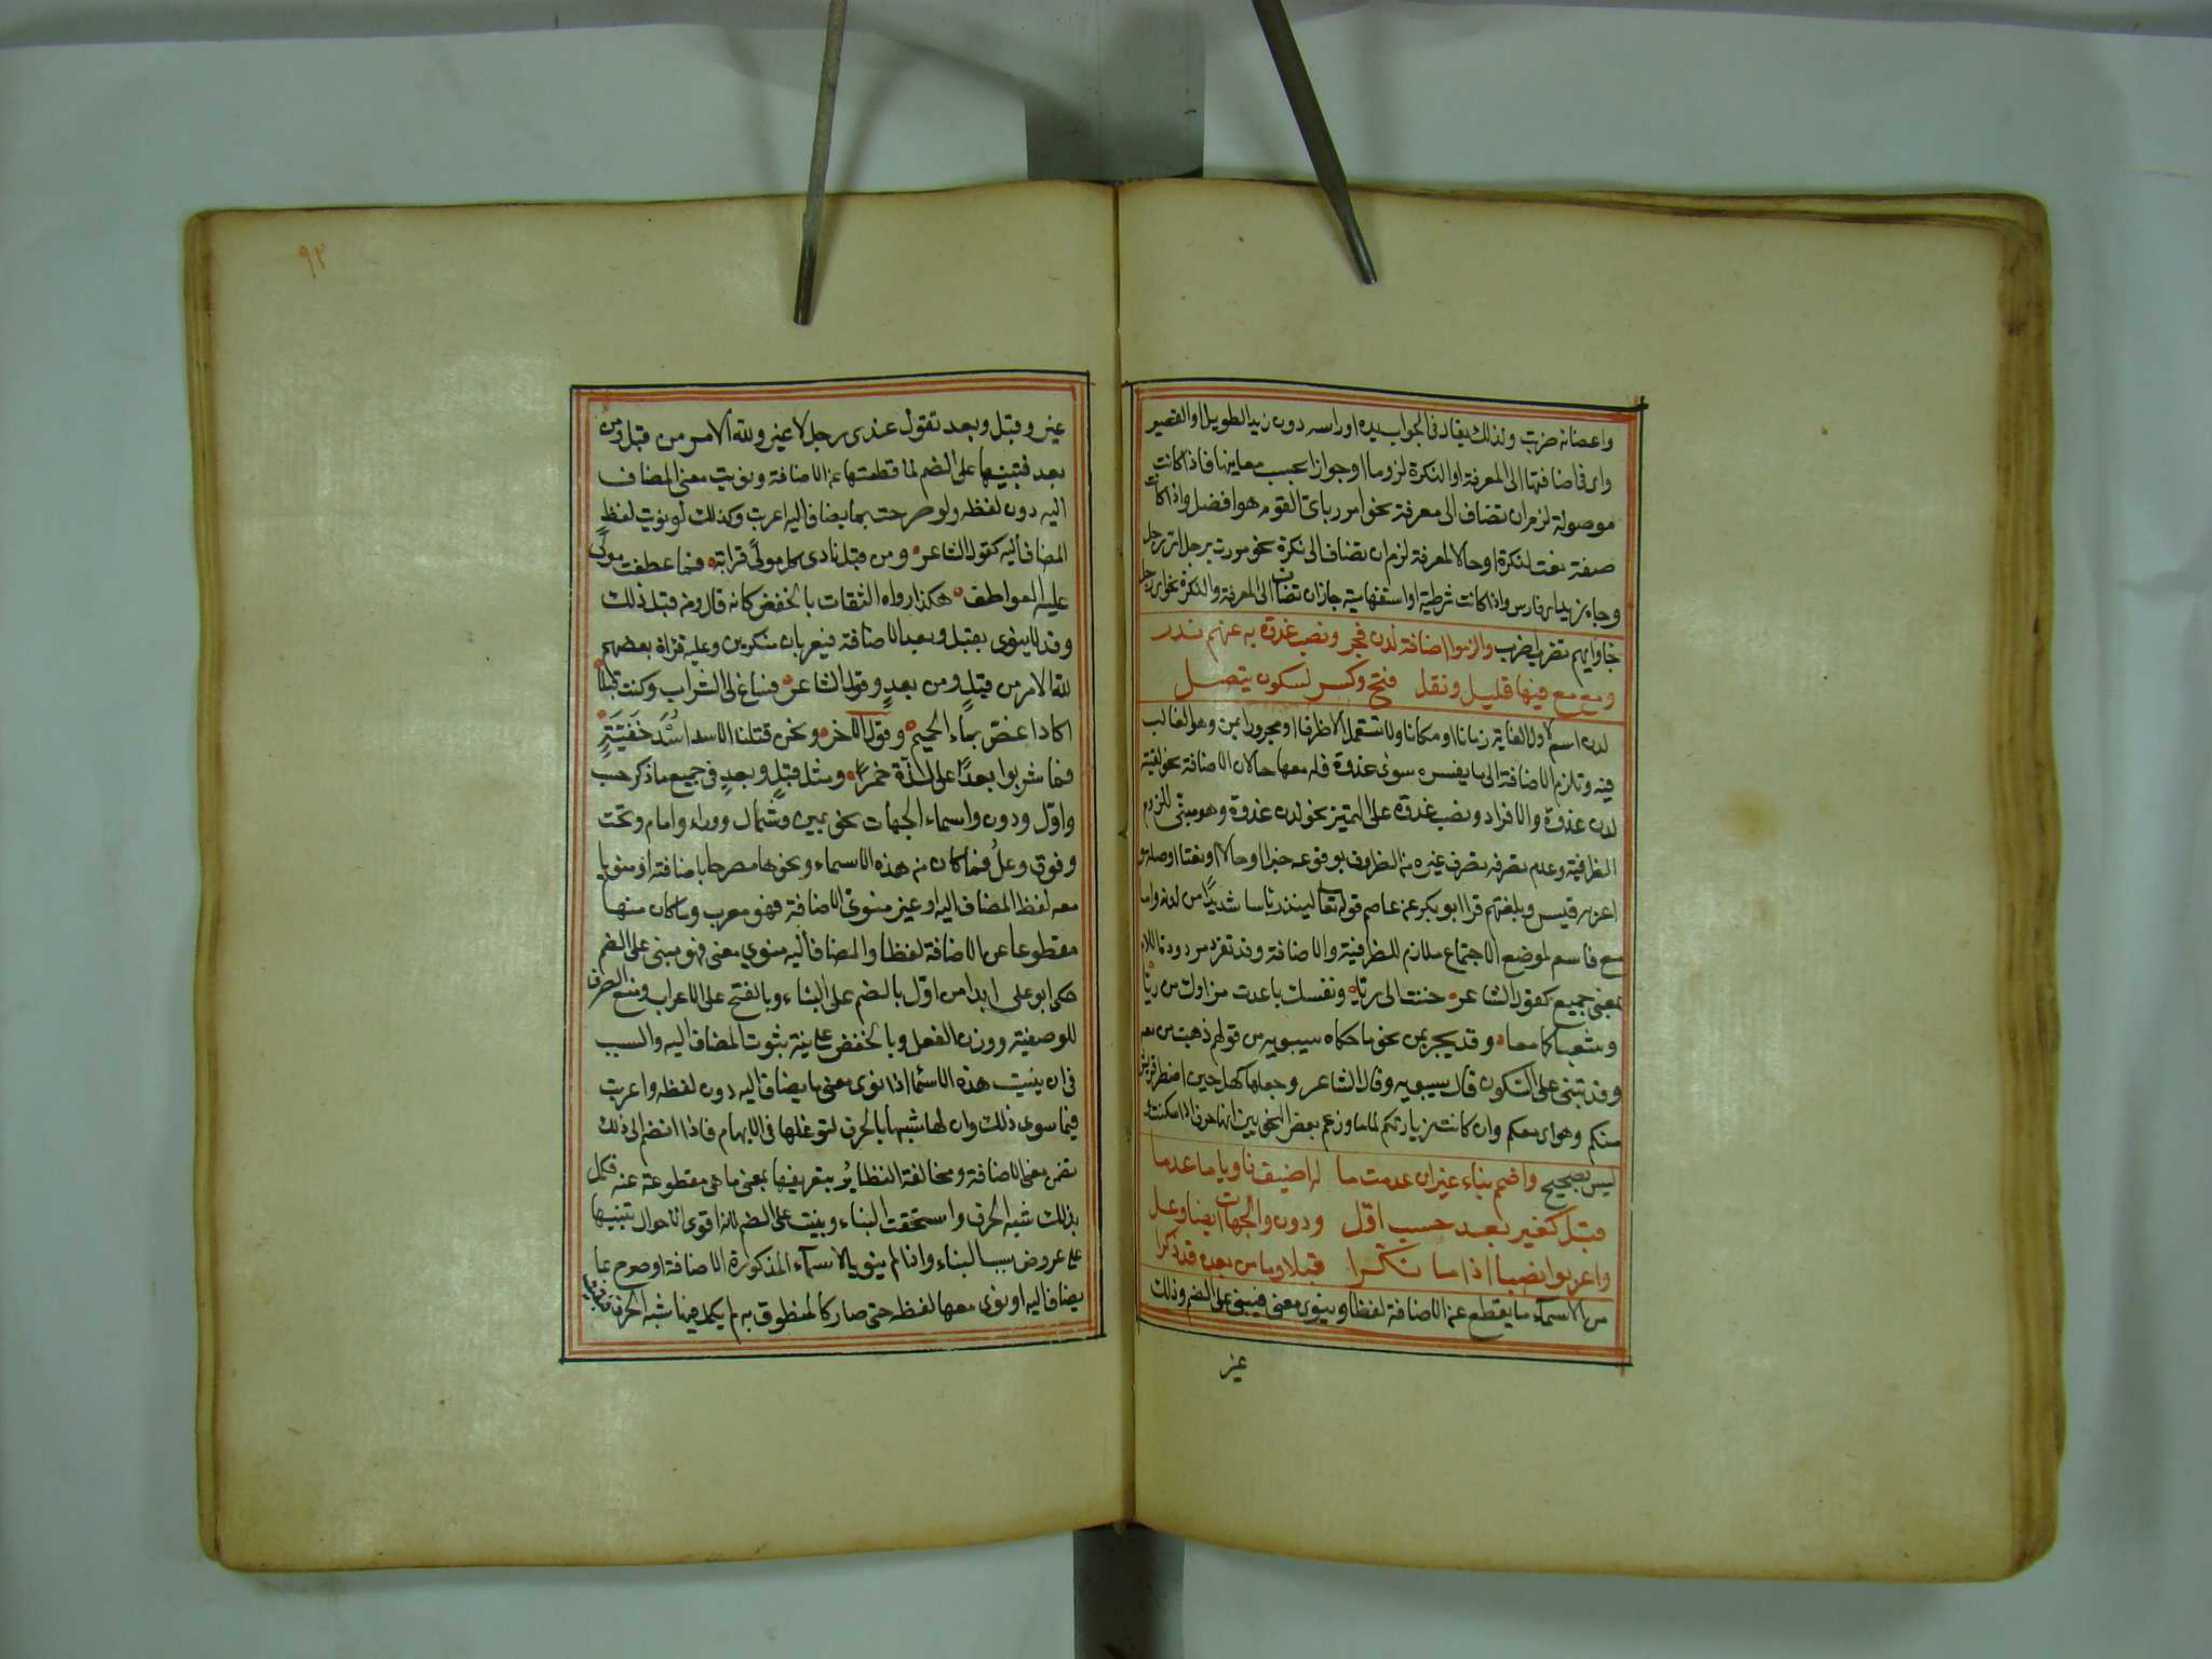 واعضائه ضربت ولذلك يقال في الجواب يده او راسه دون زيد الطويل او القصير
واي في اضافتها الى المعرفة او النكرة لزوما او جوازا بحسب معانيها فاذا كانت
موصولة لزم ان تضاف الى معرفة نحو امرر باي القوم هو افضل واذا كانت
صفة نعت لنكرة او حالا لمعرفة لزم ان تضاف الى نكرة نحو مررت برجل اي رجل
وجاء زيد اي فارس واذا كانت شرطية او استفهامية جاز ان تضاف الى المعرفة والنكرة نحو اي رجل
جاء وايهم تضرب اضرب والزموا اضافة لدن فجر ونصب غدوة به عنهم ندر
ومع مع فيها قليل ونقل فتح وكسر لسكون يتصل
لدن اسم لاول الغاية زمانا او مكانا ولا تستعمل الا ظرفا او مجرورا بمن وهو الغالب
فيه وتلزم الاضافة الى ما يفسره سوى غدوة فله معها حالان الاضافة نحو لقيته
لدن غدوة والافراد ونصب غدوة على التمييز نحو لدن غدوة وهو مبني للزوم
الظرفية وعدم تصرفه تصرف غيره من الظروف بوقوعه خبرا او حالا او نعتا او صلة و
اعربه قيس وبلغتهم قرا ابو بكر عن عاصم قوله تعالى لينذر باسا شديدا من لدنه واما
مع فاسم لموضع الاجتماع ملازم للظرفية والاضافة وقد تفرد مردودة اللام
بمعنى جميع كقول الشاعر حننت الى ريا ونفسك باعدت مزارك من ريا
وشعباكما معا وقد يجر بمن نحو ما حكاه سيبويه من قولهم ذهبت من معه
وقد تبنى على السكون قال سيبويه وقال الشاعر وجعلها كهل حين اضطر فريشي
منكم وهواي معكم وان كانت زيارتكم لماما وزعم بعض النحويين انها حرف اذا سكنت و
ليس بصحيح واضمم بناء غير ان عدمت ما له اضيف ناويا ما عدما
قبل كغير بعد حسب اول ودون والجهات ايضا وعل
واعربوا نصبا اذا ما نكرا قبلا وما من بعده قد ذكرا
من الاسماء ما يقطع عن الاضافة لفظا وينوى معنى فيبنى على الضم وذلك
غير
٩٢
غير وقبل وبعد تقول عندي رجل لا غير ولله الامر من قبل ومن
بعد فتبنيها على الضم لما قطعتها عن الاضافة ونويت معنى المضاف
اليه دون لفظه ولو صرحت بما يضاف اليه اعربت وكذلك لو نويت لفظ
المضاف اليه كقول الشاعر ومن قبل نادى كل مولى قرابة فما عطفت مولى
عليه العواطف هكذا رواه الثقات بالخفض كانه قال ومن قبل ذلك
وقد لا ينوى بقبل وبعد الاضافة فيعربان منكرين وعليه قراة بعضهم
لله الامر من قبلٍ ومن بعدٍ وقول الشاعر فساغ لي الشراب وكنت قبلا
اكاد اغص بماء الحميم وقول الاخر ونحن قتلنا الاسد اسد خفية
فما شربوا بعدا على لذة خمرا ومثل قبل وبعد في جميع ما ذكر حسب
واول ودون واسماء الجهات نحو يمين وشمال ووراء وامام وتحت
وفوق وعل فما كان من هذه الاسماء ونحوها مصرحا باضافته او منويا
معه لفظ المضاف اليه او غير منوي الاضافة فهو معرب وما كان منها
مقطوعا عن الاضافة لفظا والمضاف اليه منوي معنى فهو مبني على الضم
حكى ابو علي ابدا من اول بالضم على البناء وبالفتح على الاعراب ومنع الصرف
للوصفية ووزن الفعل وبالخفض على نية ثبوت المضاف اليه والسبب
في ان بنيت هذه الاسما اذا نوى معنى ما يضاف اليه دون لفظه واعربت
فيما سوى ذلك وان لها شبها بالحرف لتوغلها في الابهام فاذا انضم الى ذلك
تضمن معنى الاضافة ومخالفة النظاير بتعريفها بمعنى ما هي مقطوعة عنه فكمل
بذلك شبه الحرف واستحقت البناء وبنيت على الضم لانه اقوى الاحوال تنبيها
على عروض سبب البناء واذا لم ينو بالاسماء المذكورة الاضافة او صرح بما
يضاف اليه او نوى معها لفظه حتى صار كالمنطوق به لم يكمل فيها شبه الحرف